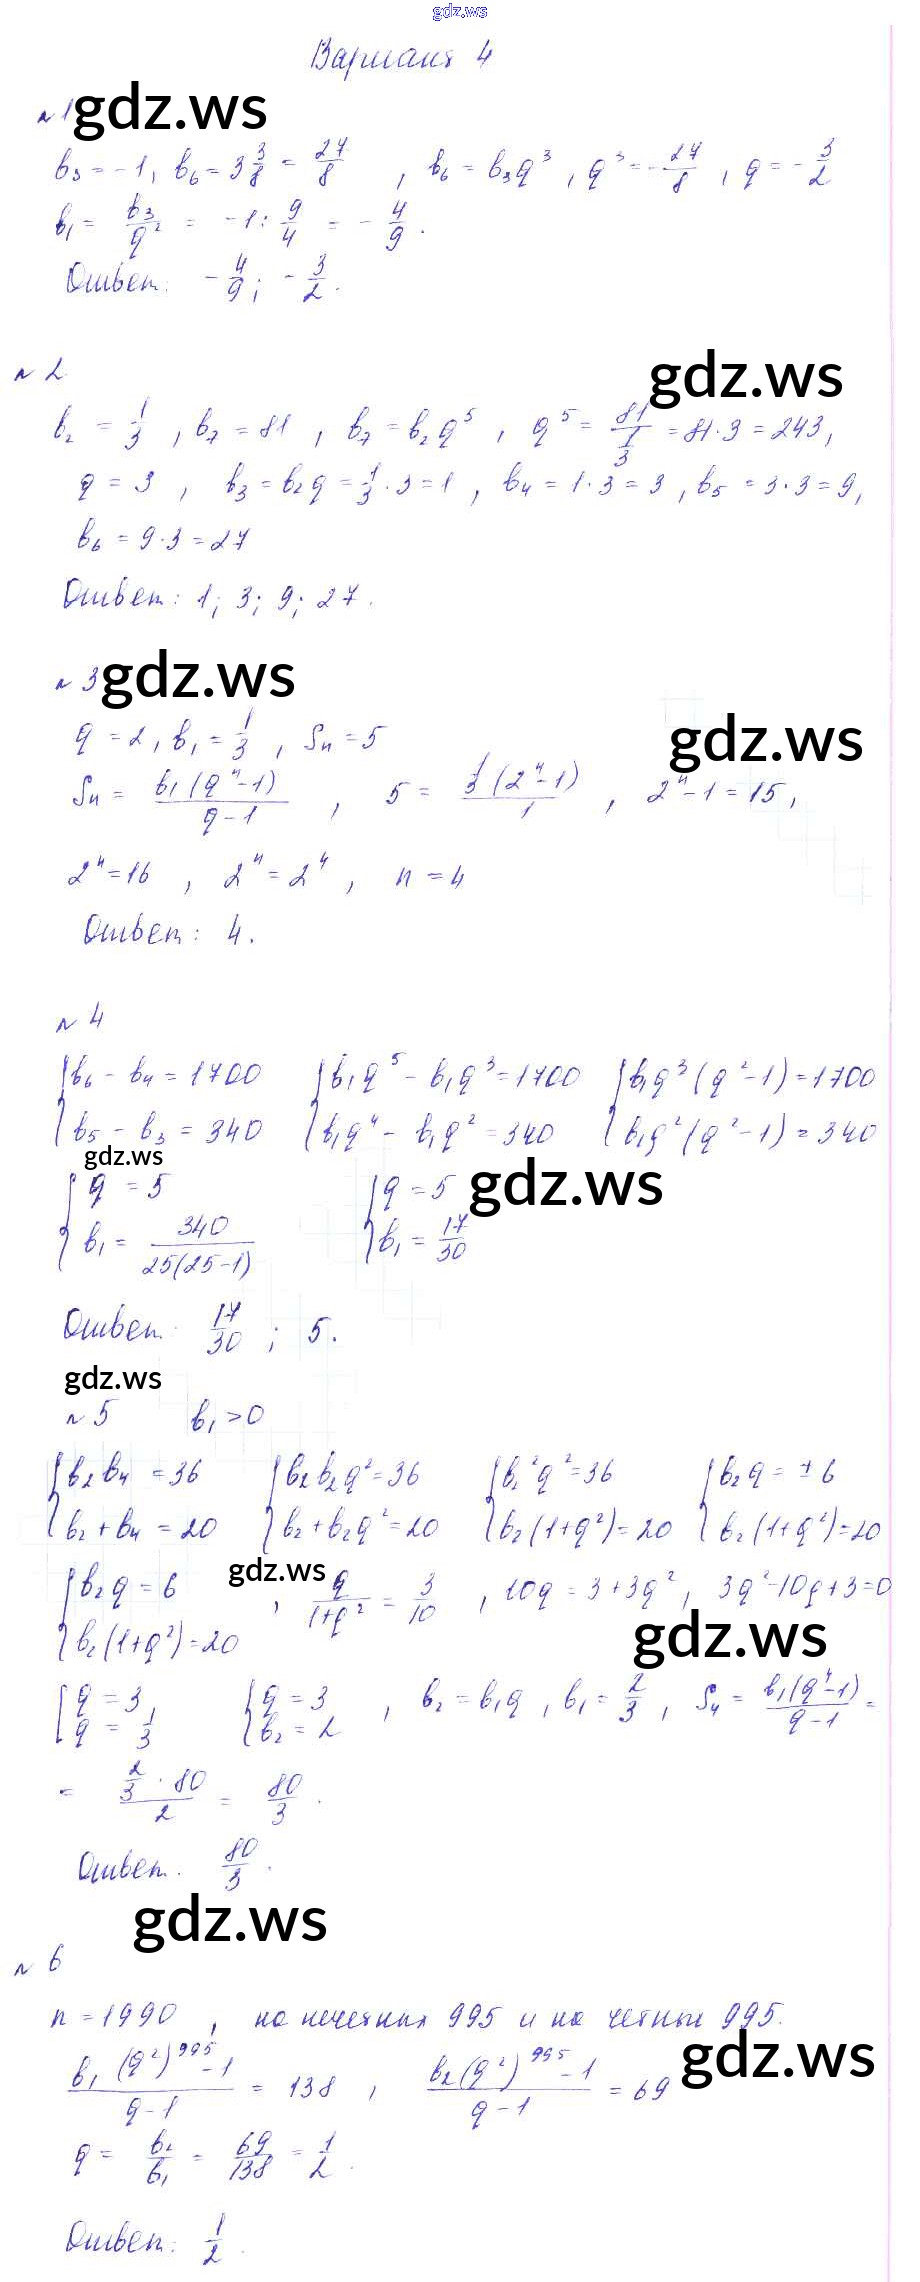 gdz.ws
Вариант 4
№1 gdz.ws
b₃ = -1, b₆ = 3 3/8 = 27/8, b₆ = b₃q³, q³ = -27/8, q = -3/2
b₁ = b₃/q² = -1 : 9/4 = -4/9.
Ответ: -4/9; -3/2.
№2 gdz.ws
b₂ = 1/3, b₇ = 81, b₇ = b₂q⁵, q⁵ = 81/(1/3) = 81·3 = 243,
q = 3, b₃ = b₂q = 1/3·3 = 1, b₄ = 1·3 = 3, b₅ = 3·3 = 9,
b₆ = 9·3 = 27
Ответ: 1; 3; 9; 27.
№3 gdz.ws
q = 2, b₁ = 1/3, Sₙ = 5 gdz.ws
Sₙ = b₁(qⁿ-1)/(q-1), 5 = 1/3(2ⁿ-1)/1, 2ⁿ-1 = 15,
2ⁿ = 16, 2ⁿ = 2⁴, n = 4
Ответ: 4.
№4
{b₆ - b₄ = 1700 {b₁q⁵ - b₁q³ = 1700 {b₁q³(q²-1) = 1700
{b₅ - b₃ = 340 {b₁q⁴ - b₁q² = 340 {b₁q²(q²-1) = 340
gdz.ws gdz.ws
{q = 5 {q = 5
{b₁ = 340/(25(25-1)) {b₁ = 17/30
Ответ: 17/30; 5.
gdz.ws
№5 b₁ > 0
{b₂b₄ = 36 {b₂b₂q² = 36 {b₂²q² = 36 {b₂q = ±6
{b₂ + b₄ = 20 {b₂ + b₂q² = 20 {b₂(1+q²) = 20 {b₂(1+q²) = 20
gdz.ws
{b₂q = 6, q/(1+q²) = 3/10, 10q = 3+3q², 3q²-10q+3 = 0
{b₂(1+q²) = 20 gdz.ws
[q = 3, {q = 3, b₂ = b₁q, b₁ = 2/3, S₄ = b₁(q⁴-1)/(q-1) =
[q = 1/3 {b₂ = 2
= (2/3·80)/2 = 80/3.
Ответ. 80/3.
gdz.ws
№6
n = 1990, на нечетных 995 и на четные 995.
b₁(q²)⁹⁹⁵-1/(q-1) = 138, b₂(q²)⁹⁹⁵-1/(q-1) = 69 gdz.ws
q = b₂/b₁ = 69/138 = 1/2.
Ответ: 1/2.